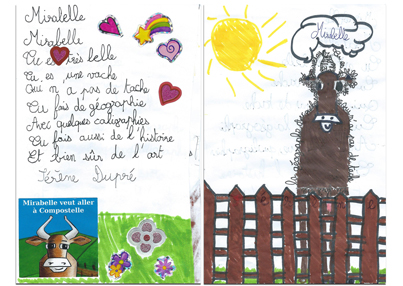 Mirabelle
Mirabelle
Tu es très belle
Tu es une vache
Qui n'a pas de tache
Tu fais de géographie
Avec quelques caligraphies
Tu fais aussi de l'histoire
Et bien sûr de l'art
Dupré
Mirabelle veut aller
à Compostelle
Mirabelle